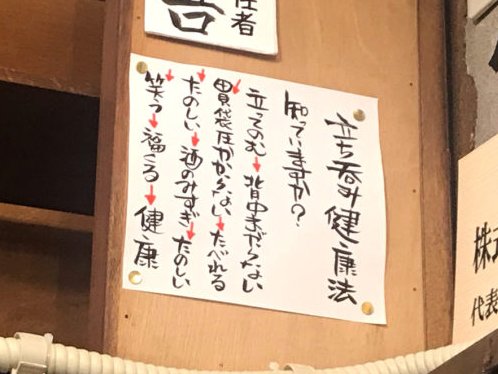 株
代表
立ち呑み健康法
知っていますか？
立ってのむ↓背中まがらない
↓胃袋圧かからない↓たべれる
↓たのしい↓酒のみすぎ↓たのしい
↓笑う↓福くる↓健康
任者